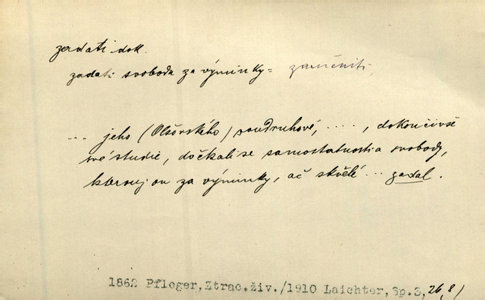 zadati dok.
zadati svobodu za výminky = zaměniti,
... jeho (Olšovského) soudruhové, ...., dokončivše
své studie, dočkali se samostatnosti a svobody,
kterouž on za výminky, ač skvělé ... zadal.
1862 Pfleger, Ztrac. živ./1910 Laichter, Sp. 3, 26,8)